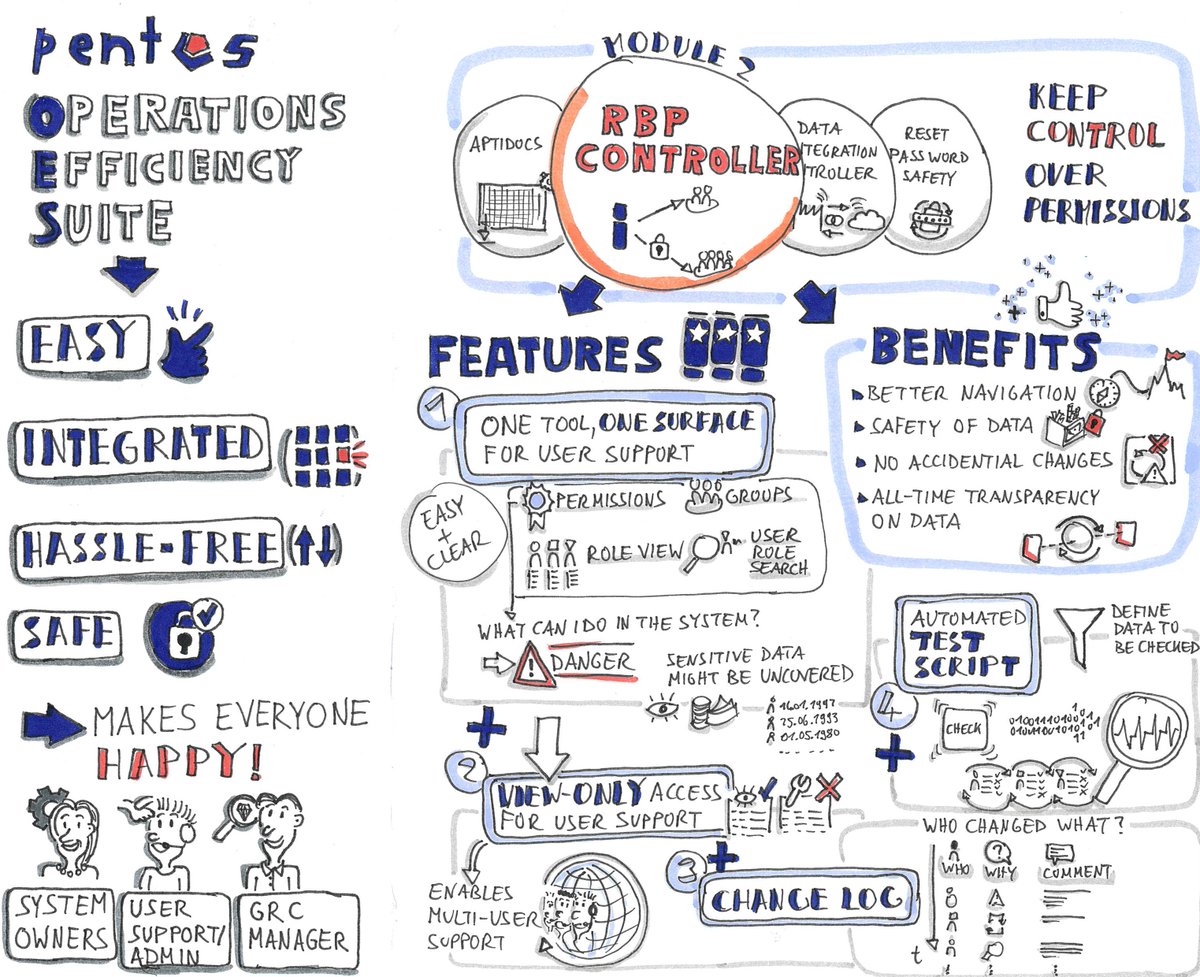 pentos
OPERATIONS
EFFICIENCY
SUITE
EASY
INTEGRATED
HASSLE-FREE
SAFE
MAKES EVERYONE
HAPPY!
SYSTEM
OWNERS
USER
SUPPORT/
ADMIN
GRC
MANAGER
MODULE 2
APTIDOCS
RBP
CONTROLLER
DATA
NTEGRATION
TROLLER
RESET
PASSWORD
SAFETY
KEEP
CONTROL
OVER
PERMISSIONS
FEATURES
1
ONE TOOL, ONE SURFACE
FOR USER SUPPORT
EASY
+
CLEAR
PERMISSIONS
GROUPS
ROLE VIEW
USER
ROLE
SEARCH
WHAT CAN I DO IN THE SYSTEM?
DANGER
SENSITIVE DATA
MIGHT BE UNCOVERED
16.01.1997
25.06.1993
01.05.1980
2
VIEW-ONLY ACCESS
FOR USER SUPPORT
ENABLES
MULTI-USER
SUPPORT
3
CHANGE LOG
BENEFITS
BETTER NAVIGATION
SAFETY OF DATA
NO ACCIDENTIAL CHANGES
ALL-TIME TRANSPARENCY
ON DATA
AUTOMATED
TEST
SCRIPT
DEFINE
DATA TO
BE CHECKED
4
CHECK
WHO CHANGED WHAT?
WHO
WHY
COMMENT
t